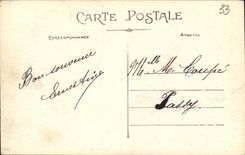 CARTE POSTALE
33
CORRESPONDANCE
ADRESSE
Bon souvenir
Mlle M. Coupé
Passy